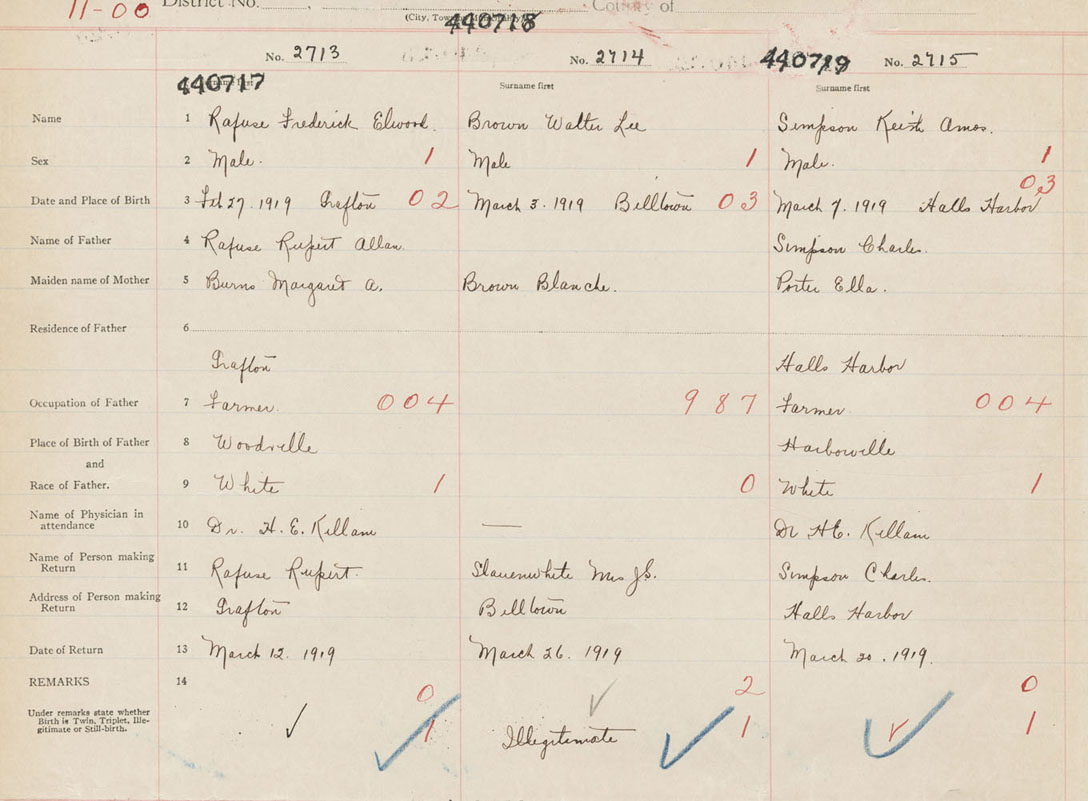 11-00 District No.
(City, Town
440718
No. 2713 No. 2714 440719 No. 2715
440717 Surname first Surname first
Name 1 Rafuse Frederick Elwood. Brown Walter Lee Simpson Keith Amos.
Sex 2 Male. 1 Male 1 Male. 1
Date and Place of Birth 3 Feb 27. 1919 Grafton 02 March 3. 1919 Belltown 03 March 7. 1919 Halls Harbor 03
Name of Father 4 Rafuse Rupert Allan. Simpson Charles.
Maiden name of Mother 5 Burns Margaret A. Brown Blanche. Porter Ella.
Residence of Father 6
Grafton Halls Harbor
Occupation of Father 7 Farmer. 004 987 Farmer. 004
Place of Birth of Father 8 Woodville Harborville
and
Race of Father. 9 White 1 0 White 1
Name of Physician in
attendance 10 Dr. H. E. Killam — Dr H.E. Killam
Name of Person making
Return 11 Rafuse Rupert. Slauenwhite Mrs J.S. Simpson Charles.
Address of Person making
Return 12 Grafton Belltown Halls Harbor
Date of Return 13 March 12. 1919 March 26. 1919 March 20. 1919.
REMARKS 14 0 2 0
Under remarks state whether
Birth is Twin, Triplet, Ille-
gitimate or Still-birth. 1 Illegitimate 1 1